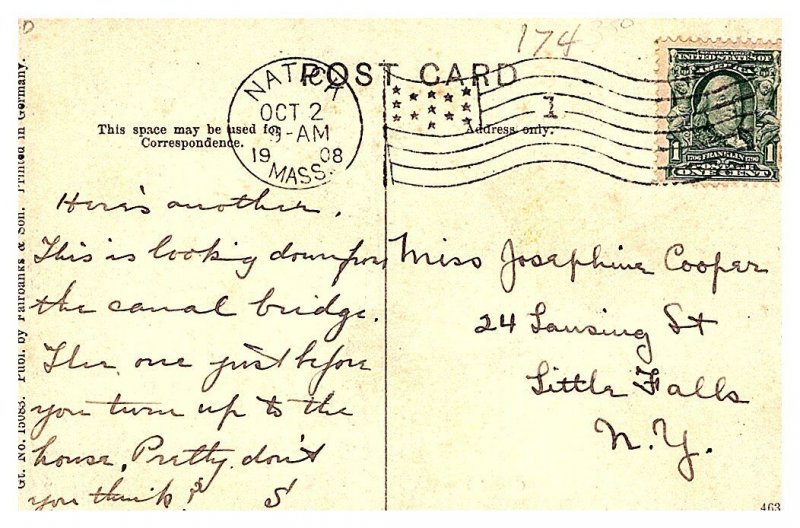 174
POST CARD
This space may be used for
Correspondence.
Address only.
NATICK
OCT 2
9-AM
19 08
MASS.
1
UNITED STATES OF
AMERICA
1 FRANKLIN 1
ONE CENT
Here's another.
This is looking down from
the canal bridge.
The one just before
you turn up to the
house. Pretty don't
you think?
S
Miss Josephine Cooper
24 Lansing St
Little Falls
N.Y.
Gt. No. 15083. Publ. by Fairbanks & Son. Printed in Germany.
463